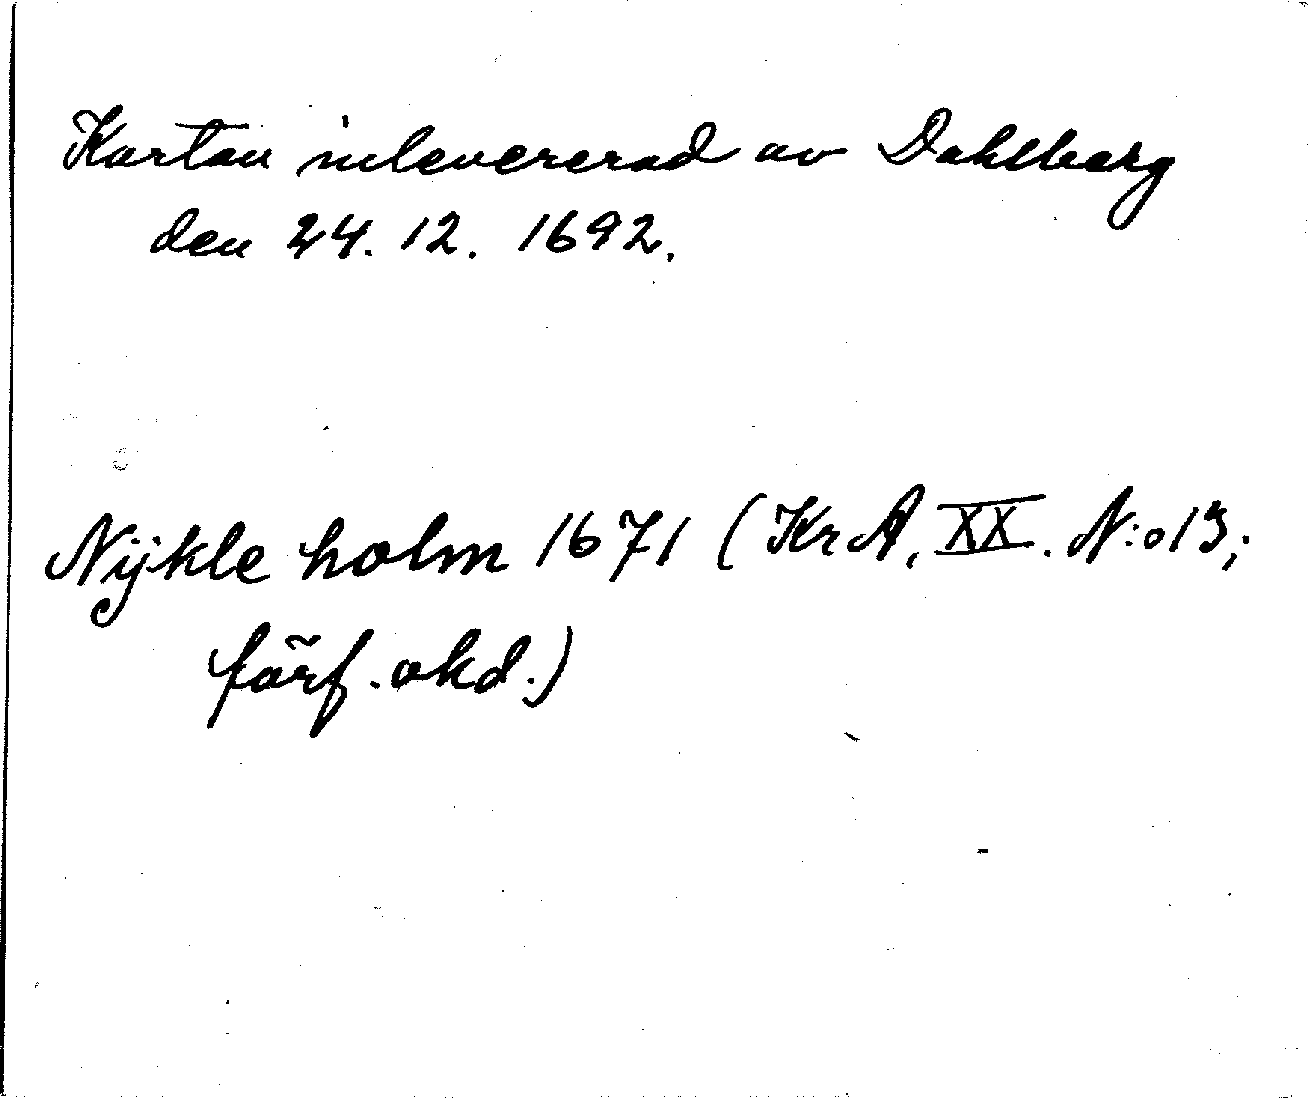 Kartan inlevererad av Dahlberg
den 24. 12. 1692.
Nijkle holm 1671 (KrA, XX. N:o 13;
förf. okd.)